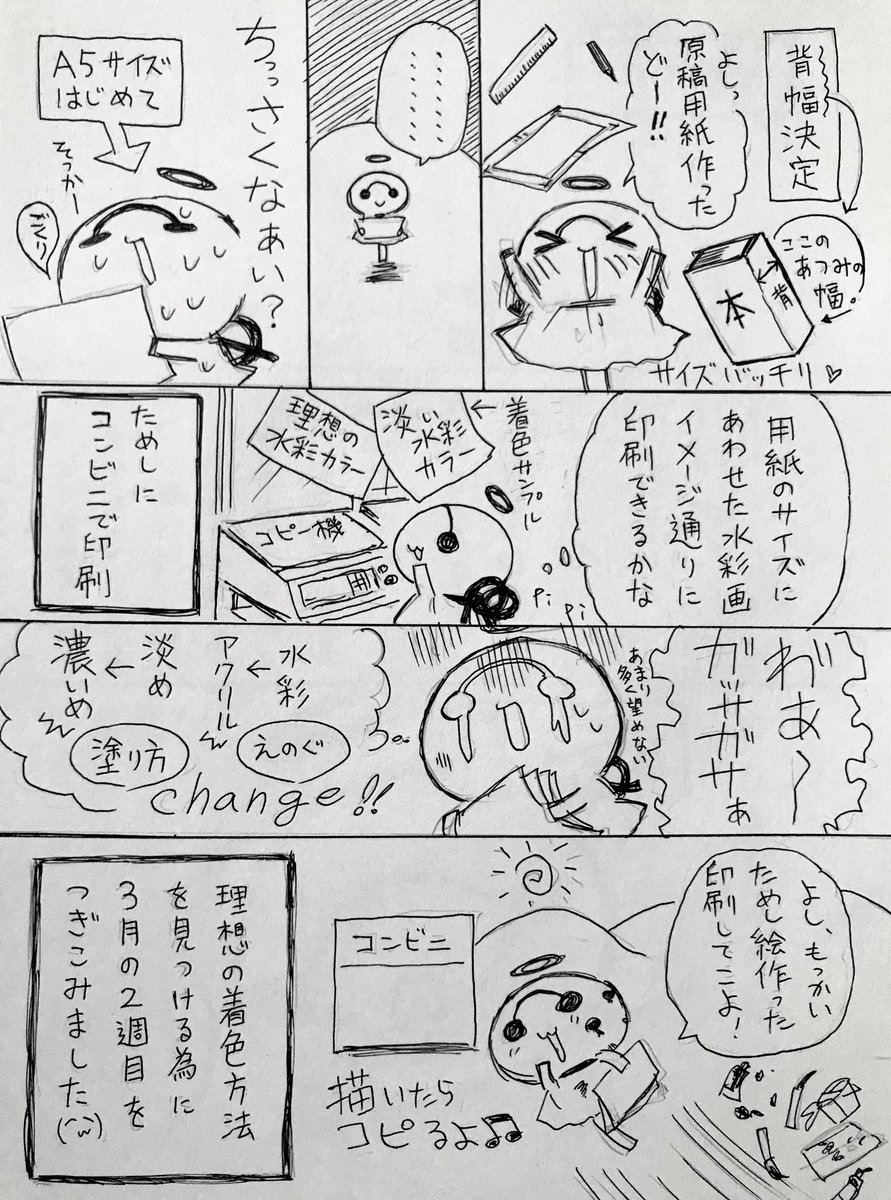 背幅決定
よしっ
原稿用紙作った
どー!!
ここの
あつみの
幅。
背
本
サイズバッチリ♡
………
………
ちっさくなぁい?
A5サイズ
はじめて
そっかー
ごくり
用紙のサイズに
あわせた水彩画
イメージ通りに
印刷できるかな
着色サンプル
淡い
水彩
カラー
理想の
水彩カラー
コピー機
Pi
Pi
ためしに
コンビニで印刷
わぁ〜
ガッサガサぁ
あまり
多く望めない
水彩
↓
アクリル
えのぐ
淡め
↓
濃いめ
塗り方
change!!
よし、もっかい
ためし絵作った
印刷してこよ!
コンビニ
描いたら
コピるよ♫
理想の着色方法
を見つける為に
3月の2週目を
つぎこみました(^^)